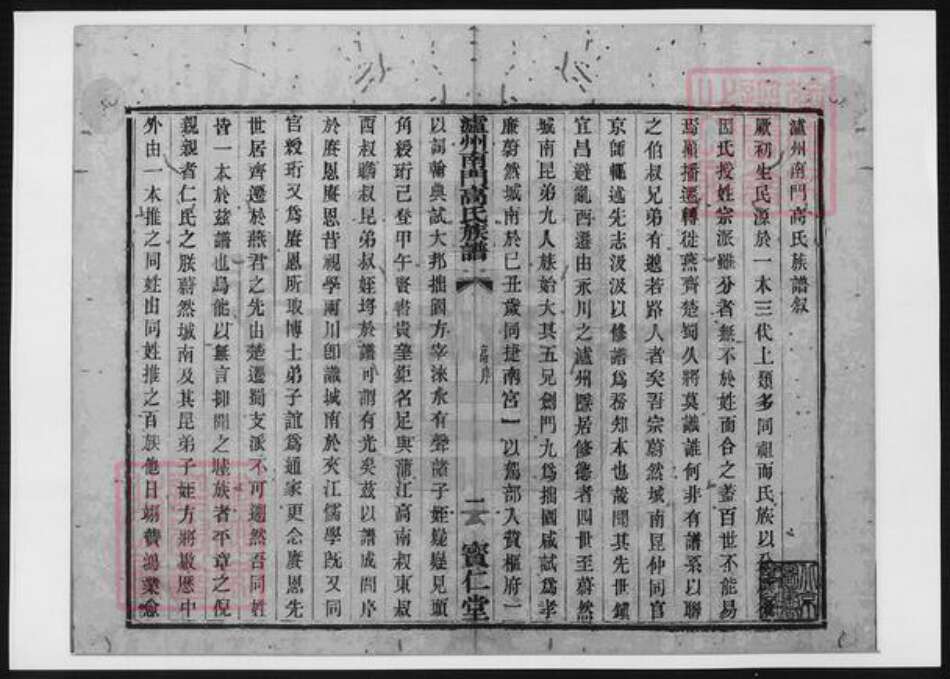 瀘州南門高氏族譜敘
厥初生民源於一本三代上類多同祖而氏族以分
因氏授姓宗派雖分者無不於姓而合之蓋百世不能易
焉顧播遷轉徙燕齊楚蜀久將莫識誰何非有譜系以聯
之伯叔兄弟有邈若路人者矣吾宗蔚然城南昆仲同官
京師輒述先志汲汲以修譜為務知本也哉聞其先世鎮
宜昌避亂西遷由永川之瀘州隱居修德者四世至蔚然
城南昆弟九人族始大其五兄劍門九為拙園咸試為孝
廉蔚然城南於己丑歲同捷南宮一以駕部入贊樞府一
瀘州南門高氏族譜
高序
二
寶仁堂
以詞翰典試大邦拙園方宰淶水有聲諸子姪嶷嶷見頭
角綬珩己登甲午賢書貴肇鉅名足與蒲江高南叔東叔
西叔聃叔昆弟叔姪埒於譜可謂有光矣茲以譜成問序
於賡恩賡恩昔視學兩川卽識城南於夾江儒學旣又同
官綬珩又為賡恩所取博士弟子誼為通家更念賡恩先
世居齊遷於燕君之先由楚遷蜀支派不可遡然吾同姓
皆一本於茲譜也烏能以無言抑聞之雎族者平章之倪
親親者仁民之朕蔚然城南及其昆弟子姪方將敭歷中
外由一本推之同姓由同姓推之百族他日翊贊鴻業愈